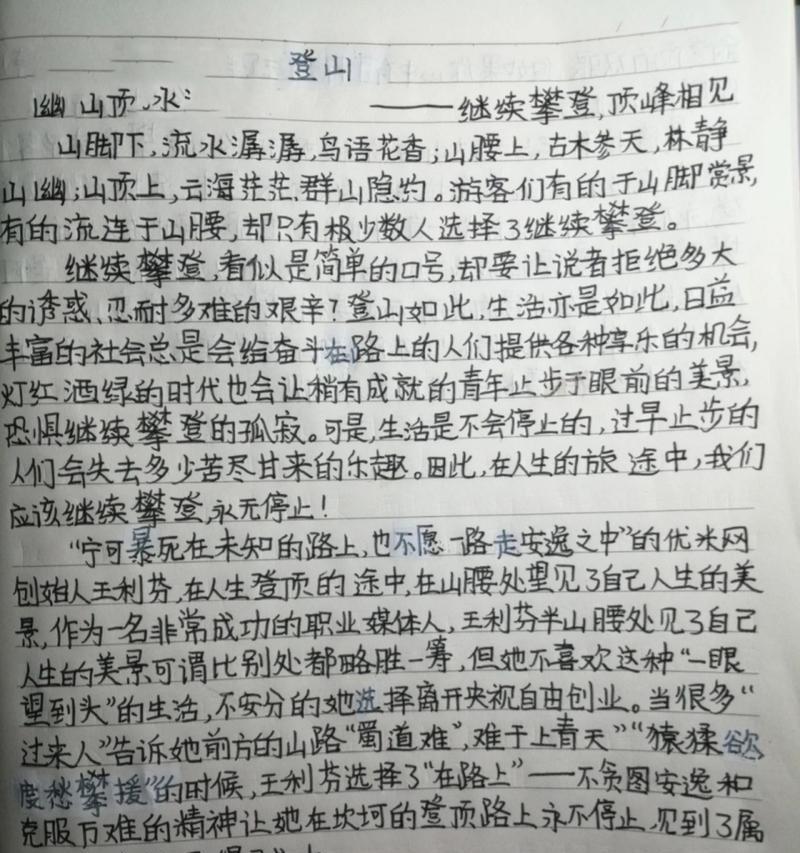 登山
幽 山顶,水
——继续攀登,顶峰相见
山脚下,流水潺潺,鸟语花香;山腰上,古木参天,林静
山幽;山顶上,云海茫茫,群山隐约。游客们有的于山脚赏景,
有的流连于山腰,却只有极少数人选择了继续攀登。
继续攀登,看似是简单的口号,却要让说者拒绝多大
的诱惑、忍耐多难的艰辛?登山如此,生活亦是如此,日益
丰富的社会总是会给奋斗在路上的人们提供各种享乐的机会,
灯红酒绿的时代也会让稍有成就的青年止步于眼前的美景,
恐惧继续攀登的孤寂。可是,生活是不会停止的,过早止步的
人们会失去多少苦尽甘来的乐趣。因此,在人生的旅途中,我们
应该继续攀登,永无停止!
“宁可暴死在未知的路上,也不愿一路走安逸之中”的优米网
创始人王利芬,在人生登顶的途中,在山腰处望见了自己人生的美
景,作为一名非常成功的职业媒体人,王利芬半山腰处见了自己
人生的美景可谓比别处都略胜一筹,但她不喜欢这种“一眼
望到头”的生活,不安分的她选择离开央视自由创业。当很多“
过来人”告诉她前方的山路“蜀道难”,难于上青天”“猿猱欲
度愁攀援”的时候,王利芬选择了“在路上”——不贪图安逸和
克服万难的精神让她在坎坷的登顶路上永不停止,见到了属